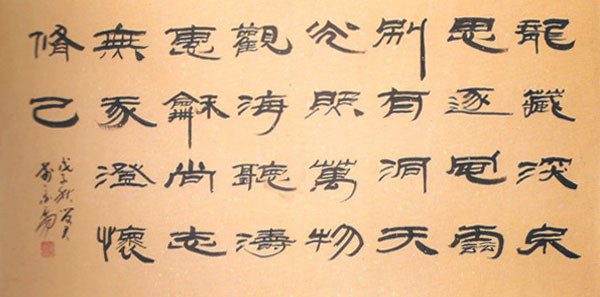 龍藏深泉
思逐風雲
別有洞天
光照萬物
觀海聽濤
惠龢尚志
無 澄懷
脩己
戊子秋